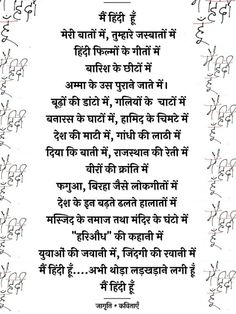 मैं हिंदी हूँ
मेरी बातों में, तुम्हारे जस्बातों में
हिंदी फिल्मों के गीतों में
बारिश के छीटों में
अम्मा के उस पुराने जाते में।
बूढ़ों की डांटो में, गलियों के चाटों में
बनारस के घाटों में, हामिद के चिमटे में
देश की माटी में, गांधी की लाठी में
दिया कि बाती में, राजस्थान की रेती में
वीरों की क्रांति में
फगुआ, बिरहा जैसे लोकगीतों में
देश के इन बढ़ते ढलते हालातों में
मस्जिद के नमाज तथा मंदिर के घंटो में
"हरिऔध" की कहानी में
युवाओं की जवानी में, जिंदगी की रवानी में
मैं हिंदी हूँ....अभी थोड़ा लड़खड़ाने लगी हूँ
मैं हिंदी हूँ
जागृति • कविताएँ